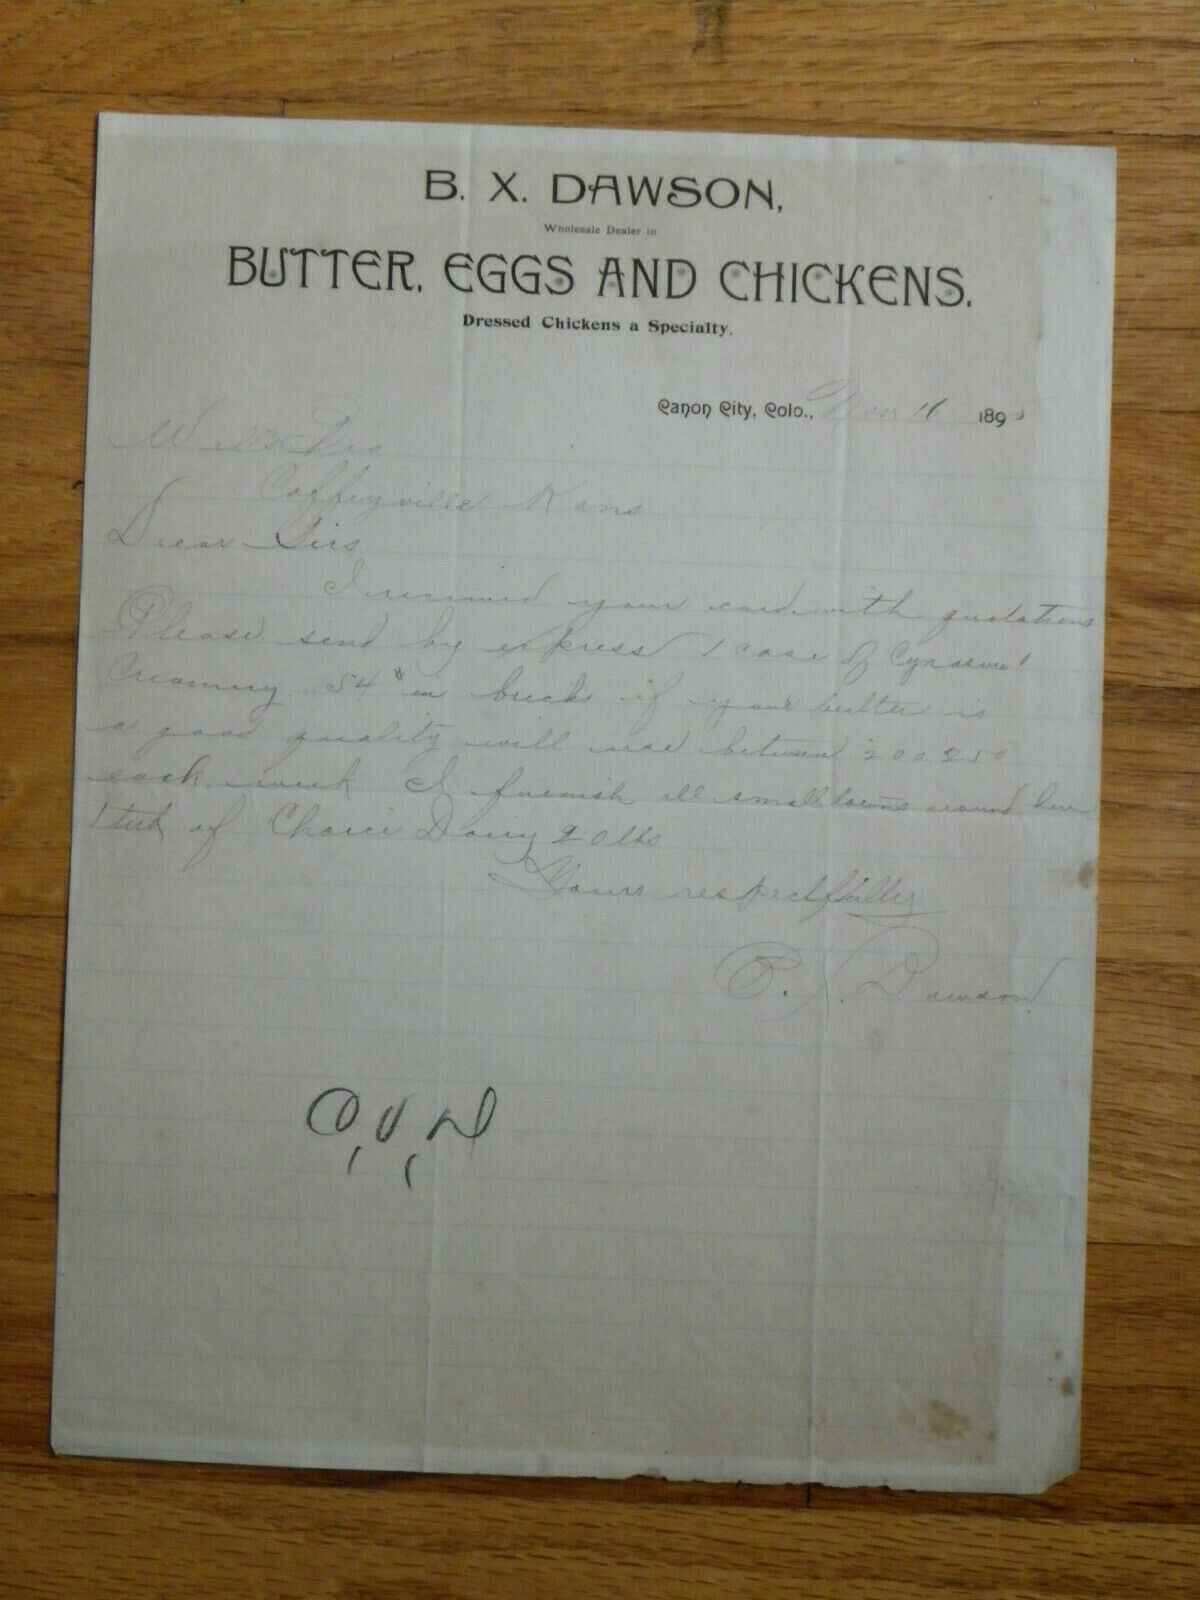 B. X. DAWSON,
Wholesale Dealer in
BUTTER, EGGS AND CHICKENS.
Dressed Chickens a Specialty.
Canon City, Colo., 16 1895
Coffeyville Kans
Dear Sirs
I received your card with quotations
Please send by express 1 case of Cynosure
Creamery 54 # in bricks if your butter is
a good quality will use between 200 250
each week I furnish all small towns around here
1 tub of Choice Dairy 20 lbs
Yours respectfully
B. X. Dawson